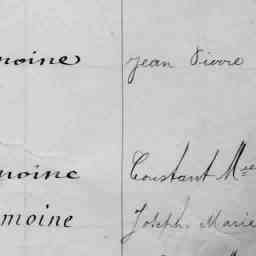 moine Jean Pierre
moine Constant Mce
moine Joseph Marie